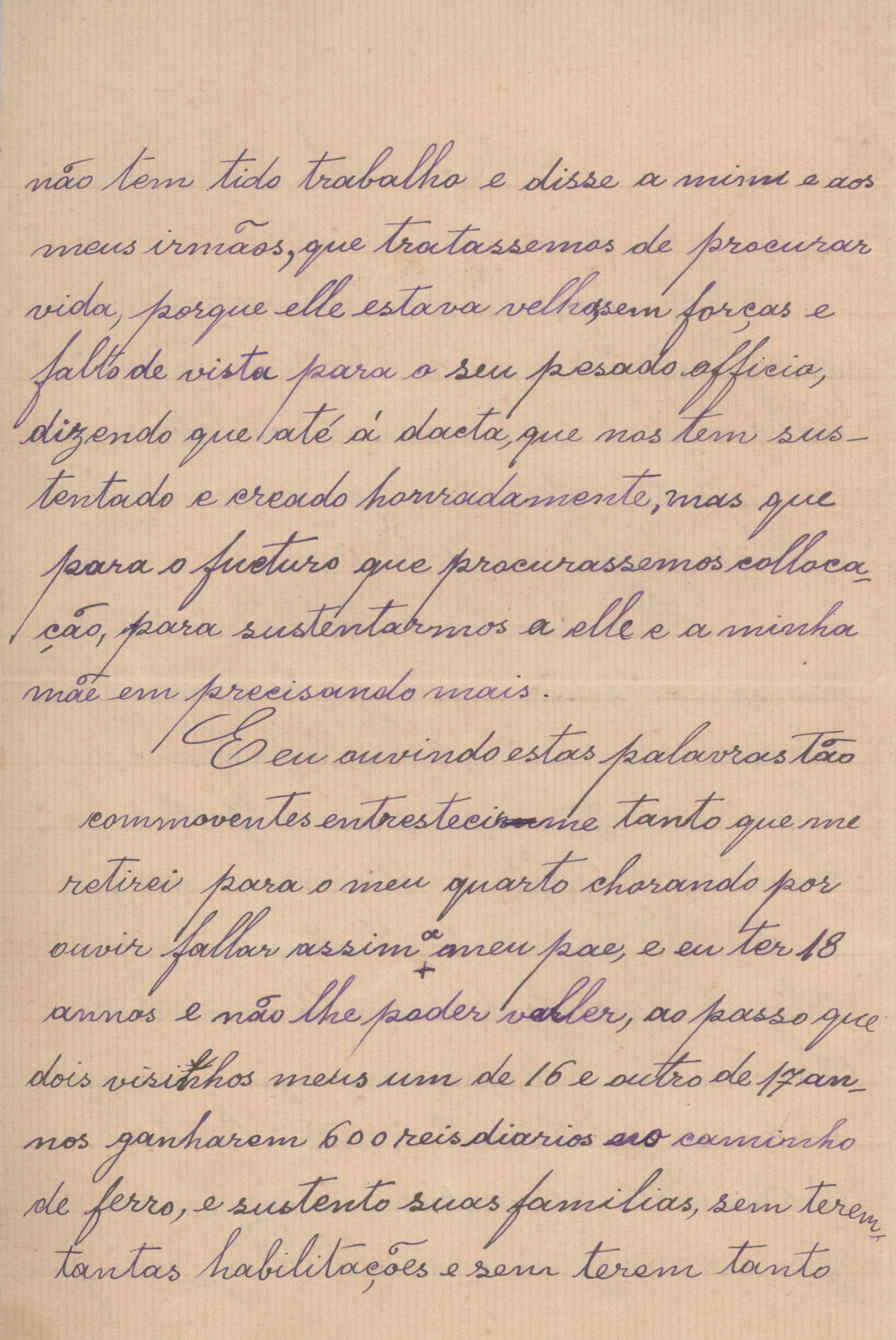 não tem tido trabalho e disse a mim e aos
meus irmãos, que tratassemos de procurar
vida, porque elle estava velho, sem forças e
falto de vista para o seu pesado officio,
dizendo que até á dacta, que nos tem sus-
tentado e creado honradamente, mas que
para o fucturo que procurassemos colloca-
ção, para sustentarmos a elle e a minha
mãe em precisando mais.
E eu ouvindo estas palavras tão
commoventes entresteci-me tanto que me
retirei para o meu quarto chorando por
ouvir fallar assim a meu pae, e eu ter 18
annos e não lhe poder valler, ao passo que
dois visinhos meus um de 16 e outro de 17 an-
nos ganharem 600 reis diarios no caminho
de ferro, e sustento suas familias, sem terem
tantas habilitações e sem terem tanto